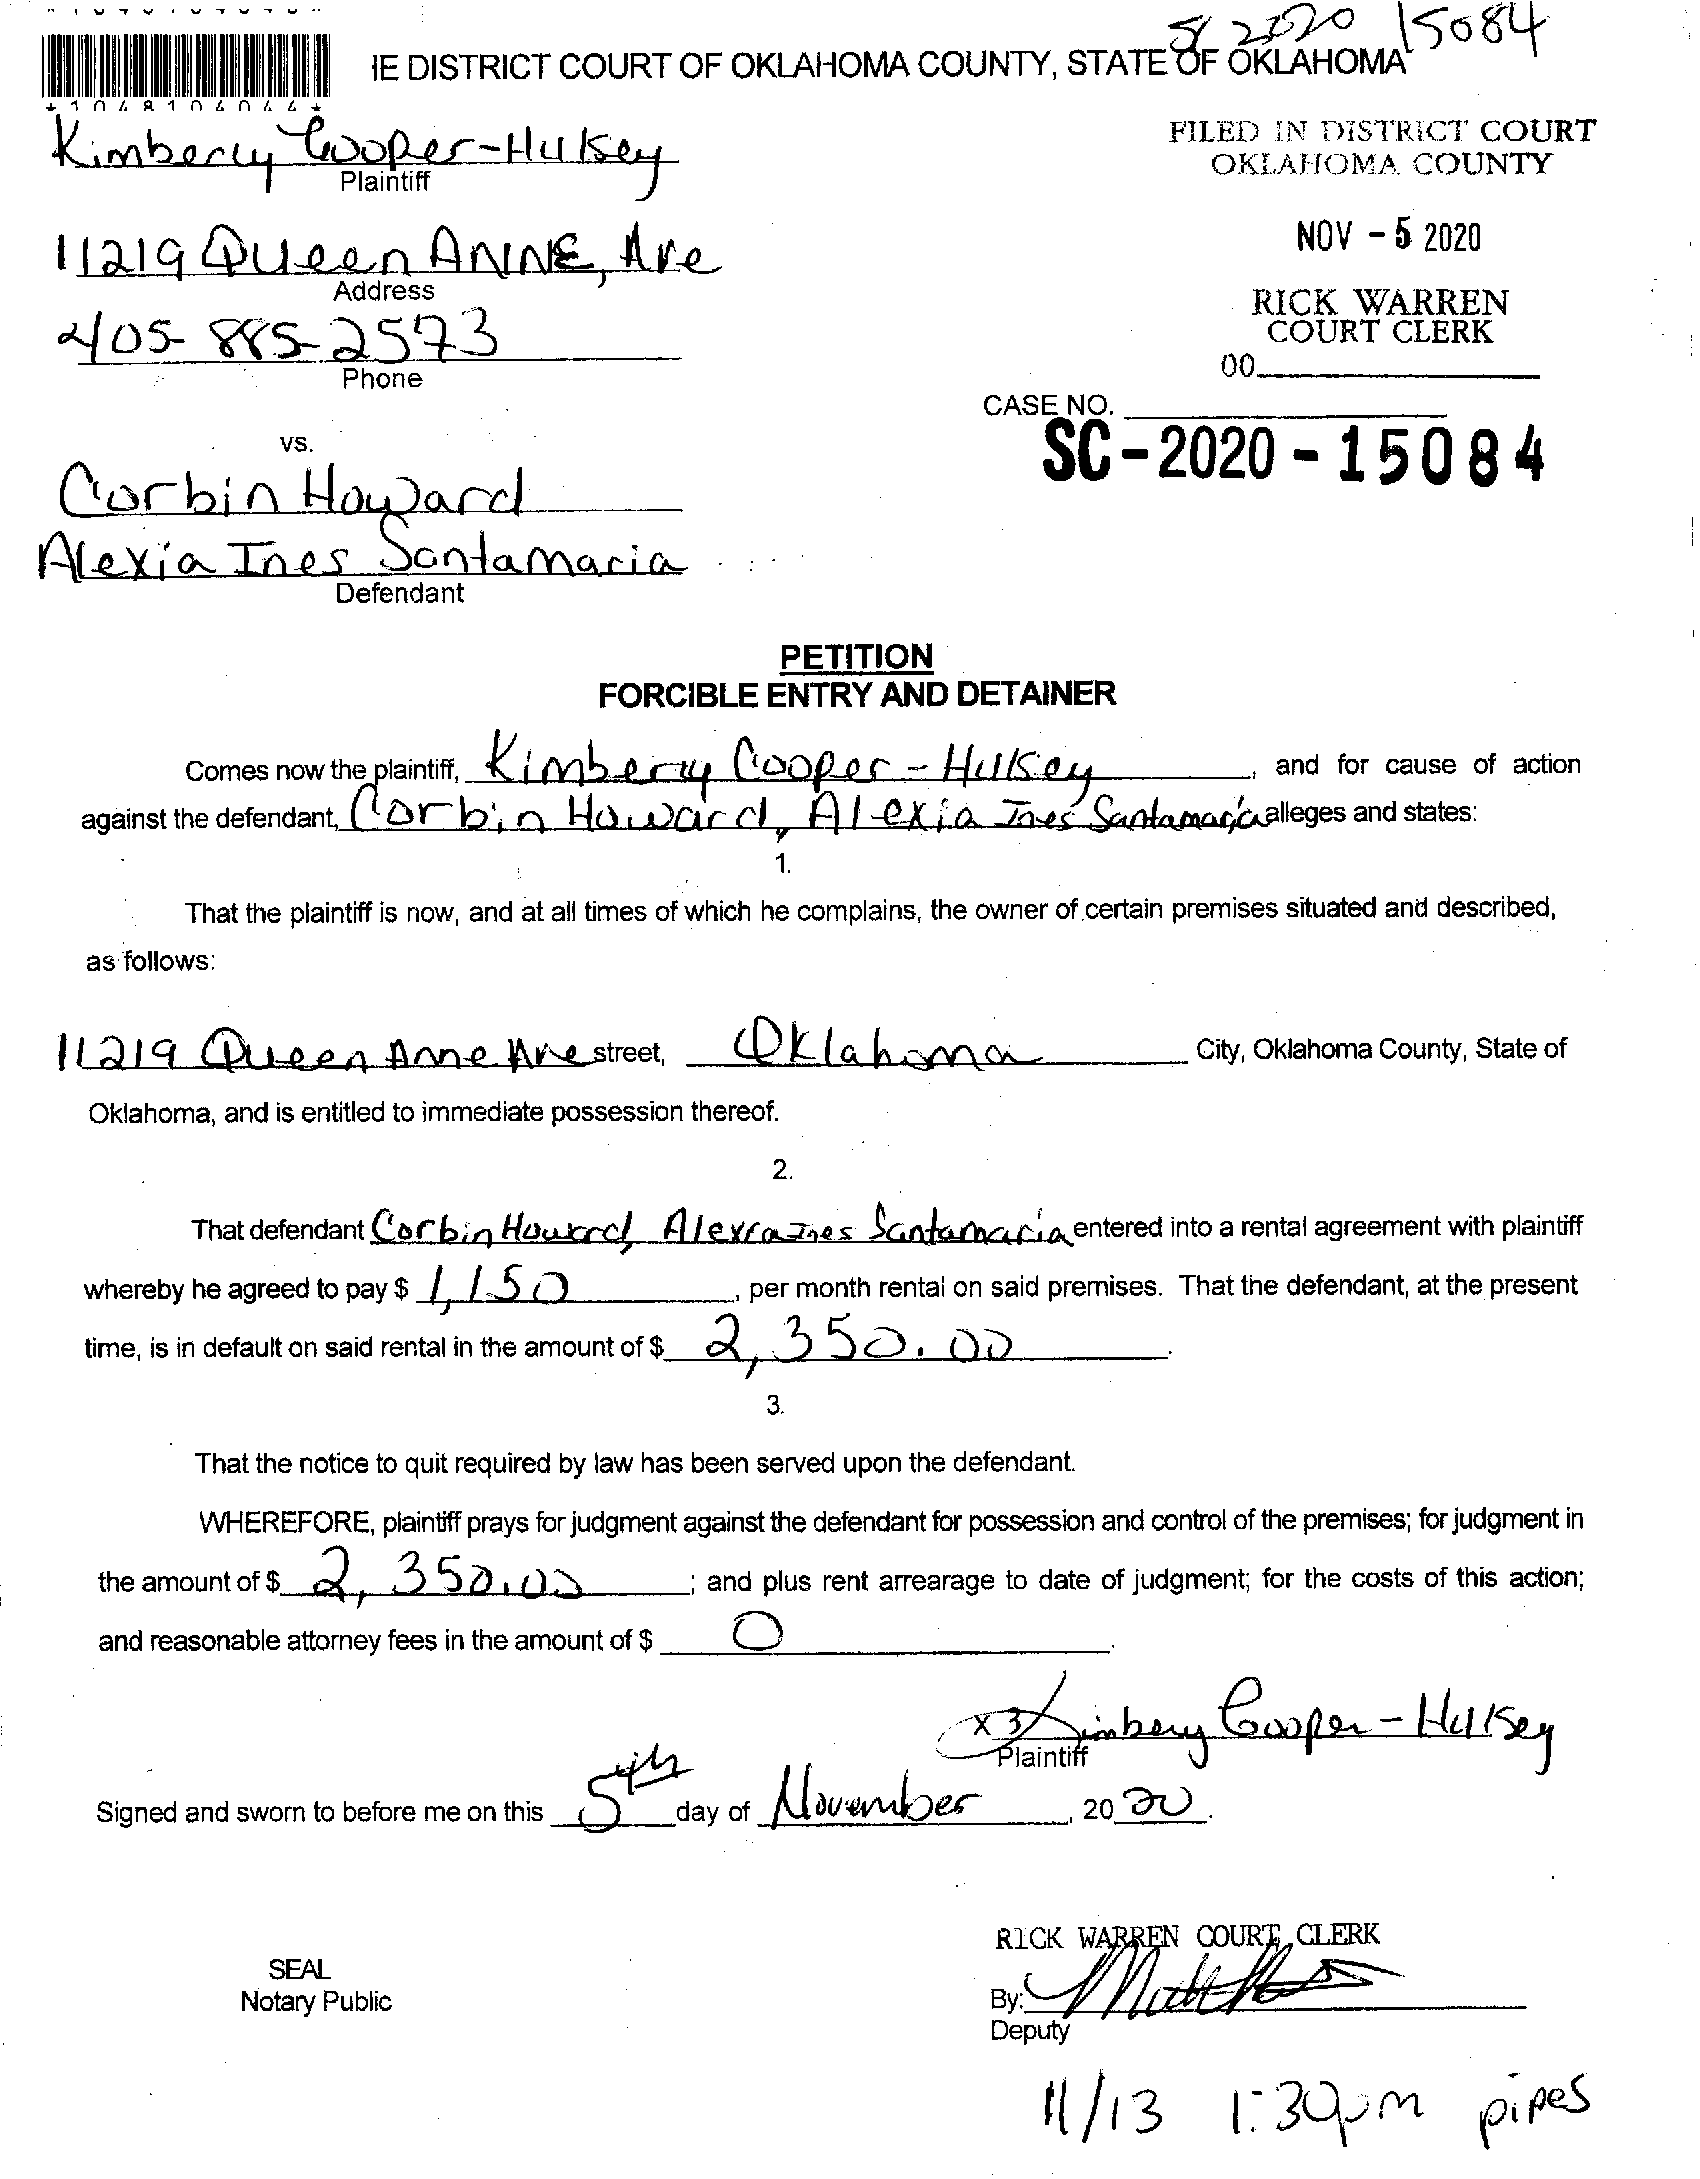 SC 2020 15084
IE DISTRICT COURT OF OKLAHOMA COUNTY, STATE OF OKLAHOMA
*1048106044*
Kimberly Cooper-Hulsey
Plaintiff
FILED IN DISTRICT COURT
OKLAHOMA COUNTY
NOV - 5 2020
RICK WARREN
COURT CLERK
00
11219 Queen ANNE, Ave
Address
405-885-2573
Phone
CASE NO.
SC-2020-15084
vs.
Corbin Howard
Alexia Ines Santamaria
Defendant
PETITION
FORCIBLE ENTRY AND DETAINER
Comes now the plaintiff, Kimberly Cooper-Hulsey, and for cause of action
against the defendant, Corbin Howard, Alexia Ines Santamaria alleges and states:
1.
That the plaintiff is now, and at all times of which he complains, the owner of certain premises situated and described,
as follows:
11219 Queen Anne Ave street, Oklahoma City, Oklahoma County, State of
Oklahoma, and is entitled to immediate possession thereof.
2.
That defendant Corbin Howard, Alexia Ines Santamaria entered into a rental agreement with plaintiff
whereby he agreed to pay $ 1,150, per month rental on said premises. That the defendant, at the present
time, is in default on said rental in the amount of $ 2,350.00.
3.
That the notice to quit required by law has been served upon the defendant.
WHEREFORE, plaintiff prays for judgment against the defendant for possession and control of the premises; for judgment in
the amount of $ 2,350.00; and plus rent arrearage to date of judgment; for the costs of this action;
and reasonable attorney fees in the amount of $ 0.
x3 Kimbery Cooper-Hulsey
Plaintiff
Signed and sworn to before me on this 5th day of November, 2020.
RICK WARREN COURT CLERK
SEAL
Notary Public
By:
Deputy
11/13 1:30pm pipes